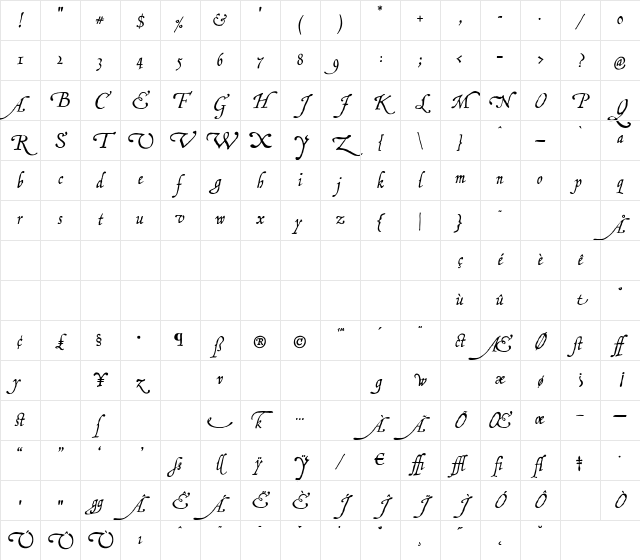 ! " # $ % & ' ( ) * + , - . / 0
1 2 3 4 5 6 7 8 9 : ; < - > ? @
A B C E F G H I J K L M N O P Q
R S T U V W X Y Z { \ } ˆ — ` a
b c d e f g h i j k l m n o p q
r s t u v w x y z { | } ˜ Å
ç é è ê
ù û t °
¢ £ § • ¶ ß ® © ™ ´ ¨ ct Æ Ø ſt ff
y ¥ z v g w æ ø ¡
st ſ k … À Ã Õ Œ œ – —
“ ” ‘ ’ ſs ll ÿ Ÿ / € ffi ffl fi fl ‡ ·
‚ „ gg Â Ê Á Ë È Í Î Ï Ì Ó Ô Ò
Ú Û Ù ı ˆ ˜ ¯ ˘ ˙ ˚ ¸ ˝ ˛ ˇ